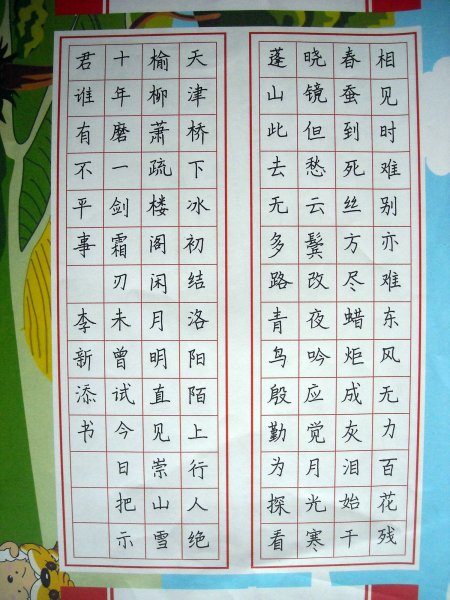 相见时难别亦难东风无力百花残
春蚕到死丝方尽蜡炬成灰泪始干
晓镜但愁云鬓改夜吟应觉月光寒
蓬山此去无多路青鸟殷勤为探看
天津桥下冰初结洛阳陌上行人绝
榆柳萧疏楼阁闲月明直见崇山雪
十年磨一剑霜刃未曾试今日把示
君谁有不平事 李新添书